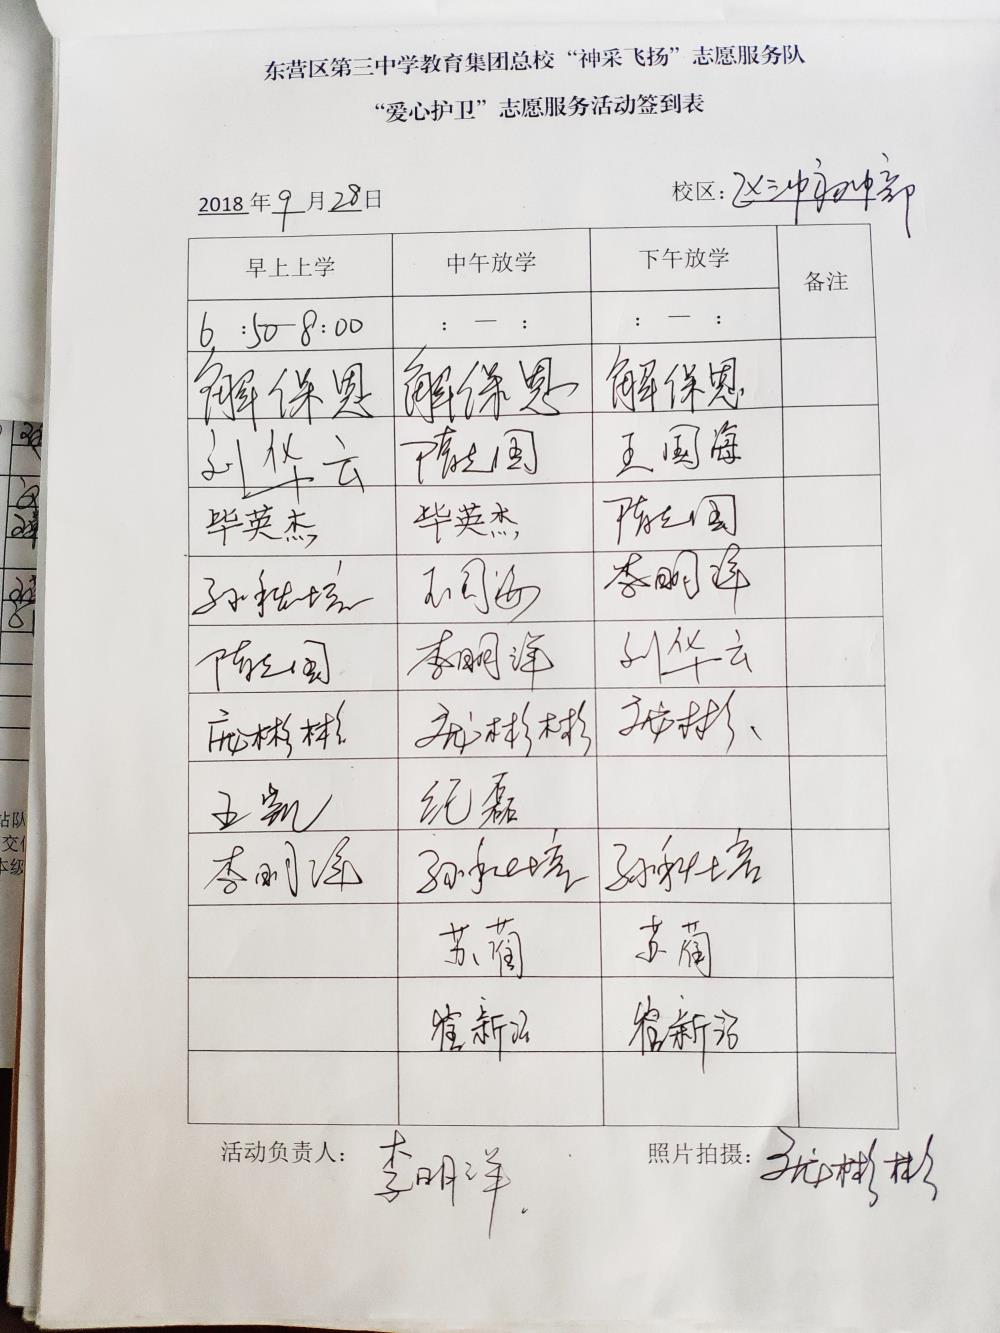 东营区第三中学教育集团总校“神采飞扬”志愿服务队
“爱心护卫”志愿服务活动签到表
2018年9月28日 校区：区三中初中部
早上上学 中午放学 下午放学 备注
6:50-8:00 :一: :一:
解保恩 解保恩 解保恩
刘华云 隋志国 王国海
毕英杰 毕英杰 隋志国
孙科培 王国海 李明洋
隋志国 李明洋 刘华云
庞彬彬 庞彬彬 庞彬彬
王凯 纪磊
李明洋 孙科培 孙科培
苏蔺 苏蔺
崔新沿 崔新沿
活动负责人：李明洋 照片拍摄：庞彬彬
站队
交
本级